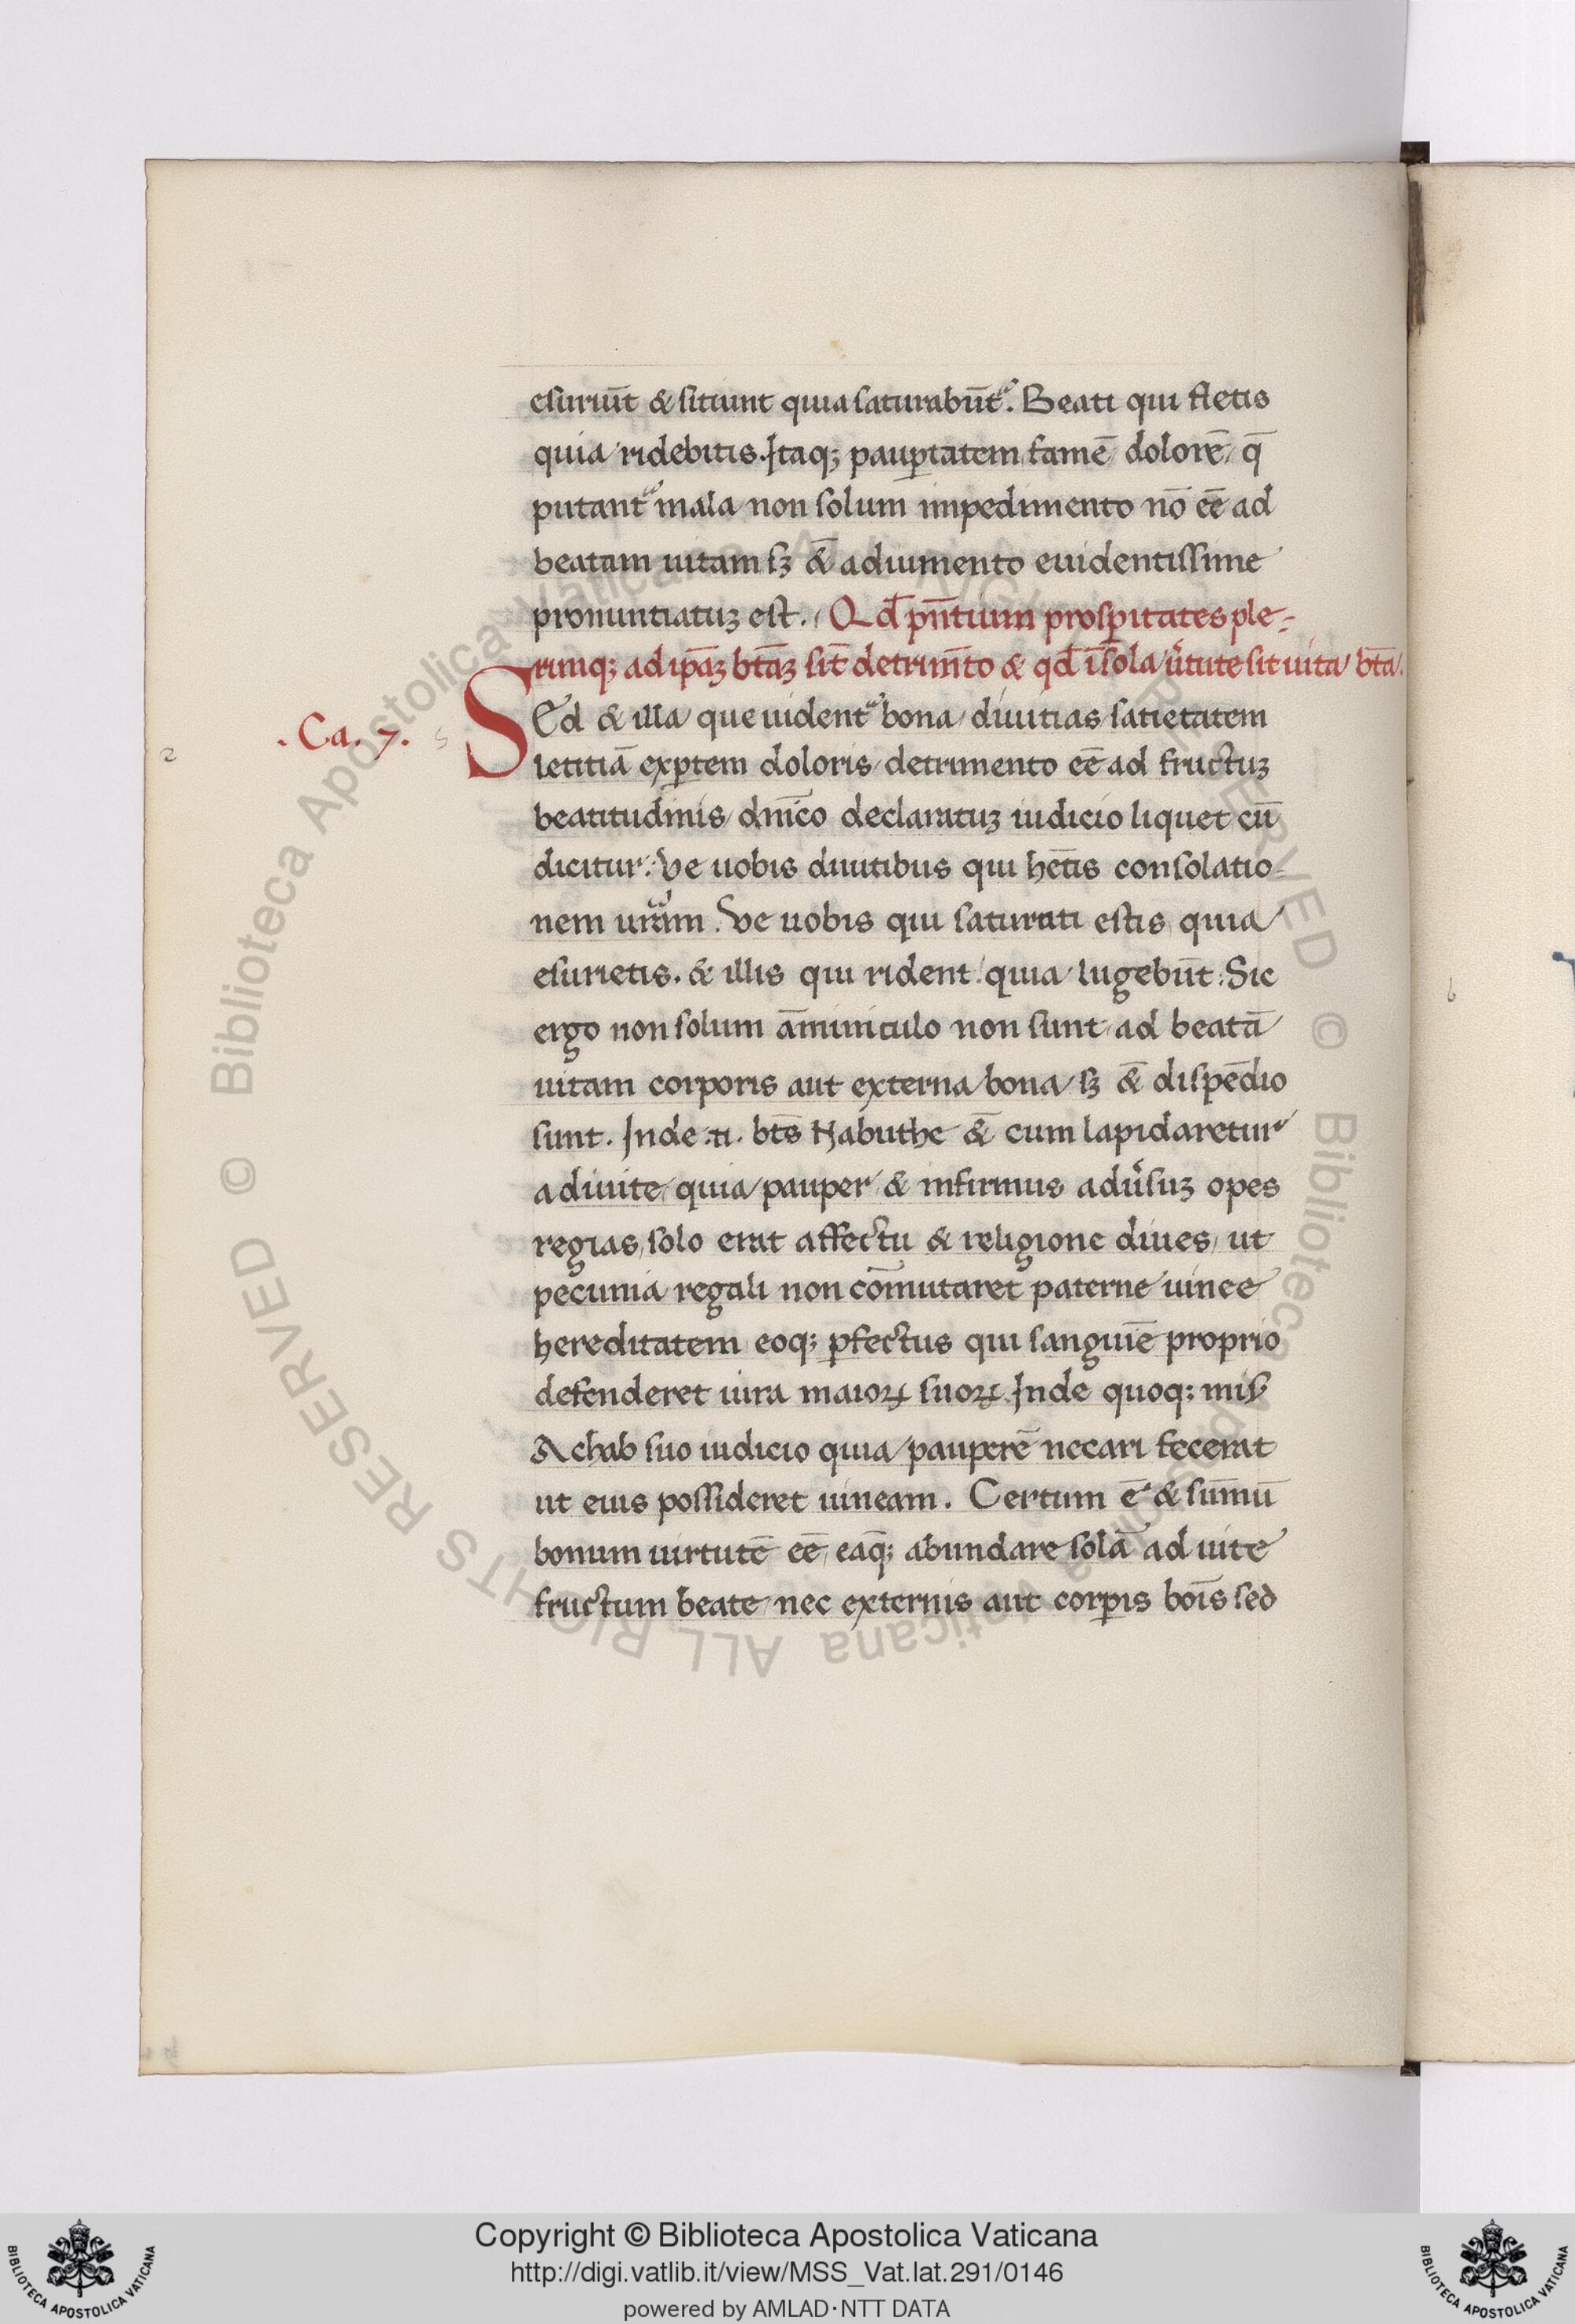 esuriūt & sitiunt quia saturabūt᷑. Beati qui fletis
quia ridebitis. Itaqꝫ paup̱tatem famē dolorē, q̄
putant᷑ mala non solum impedimento nō eē ad
beatam uitam sꝫ &̄ adiumento euidentissime
pronuntiatuꝫ est. Qd̄ pn̄tium prosp̱itates ple-
rūnqꝫ ad ip̄aꝫ bt̄aꝫ sīt detrim̄to & qd̄ ī sola u̓tute sit uita bt̄a.
.Ca. 7.
SEd & illa que uident᷑ bona diuitias satietatem
letitiā exp̱tem doloris detrimento eē ad fructuꝫ
beatitudinis dnīco declaratuꝫ iudicio liquet cū
dicitur: Ve uobis diuitibus qui hētis consolatio-
nem uram. Ve uobis qui saturati estis quia
esurietis. & illis qui rident quia lugebūt: Sic
ergo non solum āminiculo non sunt ad beatā
uitam corporis aut externa bona sꝫ &̄ dispēdio
sunt. Inde .n. bt̄s Nabuthe &̄ cum lapidaretur
a diuite quia pauper & infirmus adu̓suꝫ opes
regias, solo erat affectu & religione diues, ut
pecunia regali non cōmutaret paterne uinee
hereditatem eoqꝫ ꝑfectus qui sanguiē proprio
defenderet iura maioꝝ suoꝝ. Inde quoqꝫ mis̓
Achab suo iudicio quia pauperē necari fecerat
ut eius possideret uineam. Certum ē & sūmū
bonum uirtutē eē, eāqꝫ abundare solā ad uite
fructum beate nec externis aut corp̱is boīs sed
Copyright © Biblioteca Apostolica Vaticana
http://digi.vatlib.it/view/MSS_Vat.lat.291/0146
powered by AMLAD·NTT DATA
BIBLIOTECA APOSTOLICA VATICANA
BIBLIOTECA APOSTOLICA VATICANA
© Biblioteca Apostolica Vaticana ALL RIGHTS RESERVED
© Biblioteca Apostolica Vaticana ALL RIGHTS RESERVED